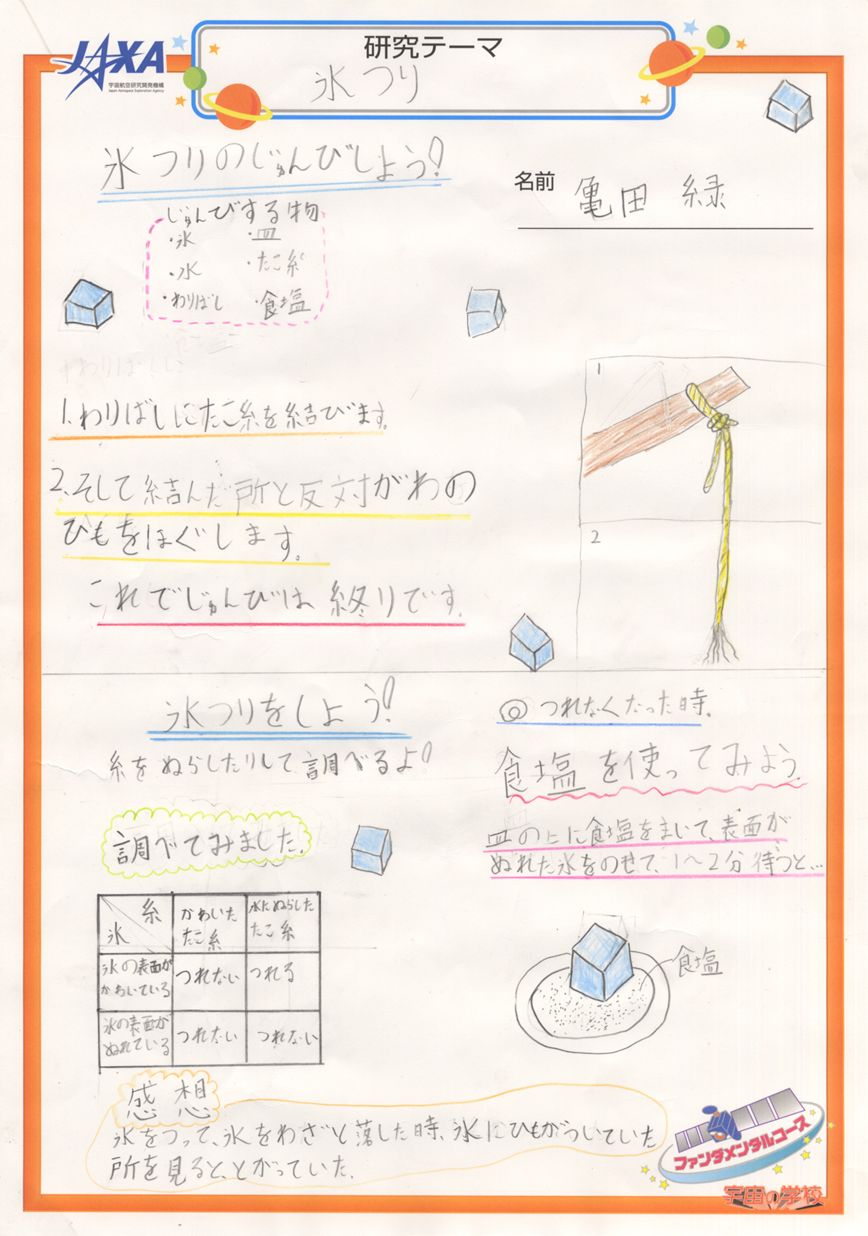 JAXA
宇宙航空研究開発機構
Japan Aerospace Exploration Agency
研究テーマ
氷つり
氷つりのじゅんびしよう!
名前 亀田 緑
じゅんびする物
・氷 ・皿
・水 ・たこ糸
・わりばし ・食塩
1.わりばしにたこ糸を結びます。
2.そして結んだ所と反対がわの
ひもをほぐします。
これでじゅんびは終りです。
1
2
氷つりをしよう!
糸をぬらしたりして、調べるよ!
調べてみました。
糸
氷
かわいた
たこ糸
水にぬらした
たこ糸
氷の表面が
かわいている
つれない
つれる
氷の表面が
ぬれている
つれない
つれない
◎ つれなくなった時。
食塩を使ってみよう。
皿の上に食塩をまいて、表面が
ぬれた氷をのせて、1〜2分待つと…
食塩
感想
氷をつって、氷をわざと落した時、氷にひもがついていた
所を見ると、とがっていた。
ファンダメンタルコース
宇宙の学校